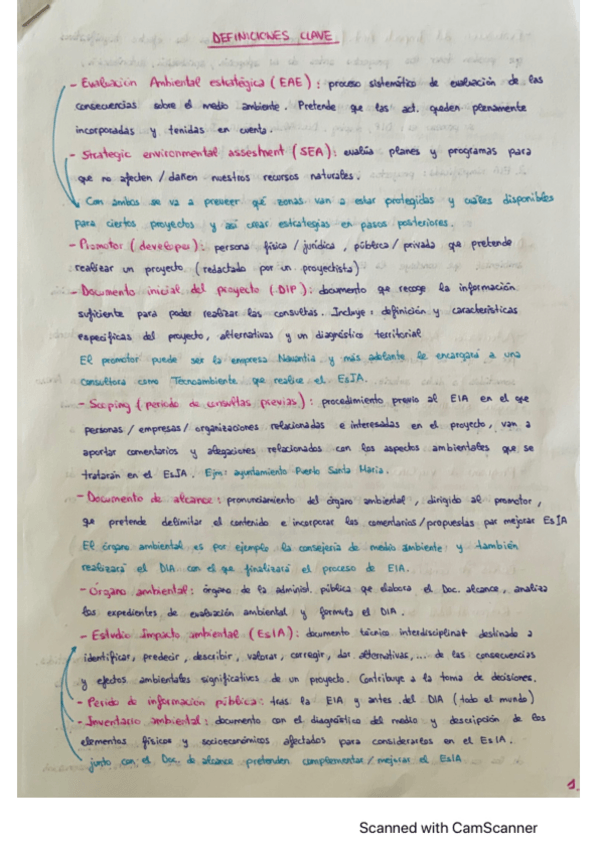 DEFINICIONES CLAVE.
- Evaluación Ambiental estratégica (EAE): proceso sistemático de evaluación de las
consecuencias sobre el medio ambiente. Pretende que las act. queden plenamente
incorporadas y tenidas en cuenta.
- Strategic environmental assesment (SEA): evalúa planes y programas para
que no afecten / dañen nuestros recursos naturales.
Con ambos se va a preveer qué zonas van a estar protegidas y cuáles disponibles
para ciertos proyectos y así crear estrategias en pasos posteriores.
- Promotor (developer): persona física / jurídica, pública / privada que pretende
realizar un proyecto (redactado por un proyectista)
- Documento inicial del proyecto (DIP): documento que recoge la información
suficiente para poder realizar las consultas. Incluye: definición y características
específicas del proyecto, alternativas y un diagnóstico territorial
El promotor puede ser la empresa Navantia y más adelante le encargará a una
consultora como Tecnoambiente que realice el EsIA.
- Scoping (periodo de consultas previas): procedimiento previo al EIA en el que
personas / empresas / organizaciones relacionadas e interesadas en el proyecto, van a
aportar comentarios y alegaciones relacionados con los aspectos ambientales que se
tratarán en el EsIA. Ejm: ayuntamiento Puerto Santa María.
- Documento de alcance: pronunciamiento del órgano ambiental, dirigido al promotor,
que pretende delimitar el contenido e incorporar los comentarios/propuestas par mejorar EsIA
El órgano ambiental es por ejemplo la consejería de medio ambiente y también
realizará el DIA con el que finalizará el proceso de EIA.
- Órgano ambiental: órgano de la administ. pública que elabora el Doc. alcance, analiza
los expedientes de evaluación ambiental y formula el DIA.
- Estudio Impacto ambiental (EsIA): documento técnico interdisciplinar destinado a
identificar, predecir, describir, valorar, corregir, dar alternativas,... de las consecuencias
y efectos ambientales significativos de un proyecto. Contribuye a la toma de decisiones.
- Pérido de información pública: tras la EIA y antes del DIA (todo el mundo)
- Inventario ambiental: documento con el diagnóstico del medio y descripción de los
elementos físicos y socioeconómicos afectados para considerarlos en el EsIA.
junto con el Doc. de alcance pretenden complementar/mejorar el EsIA
1.
Scanned with CamScanner